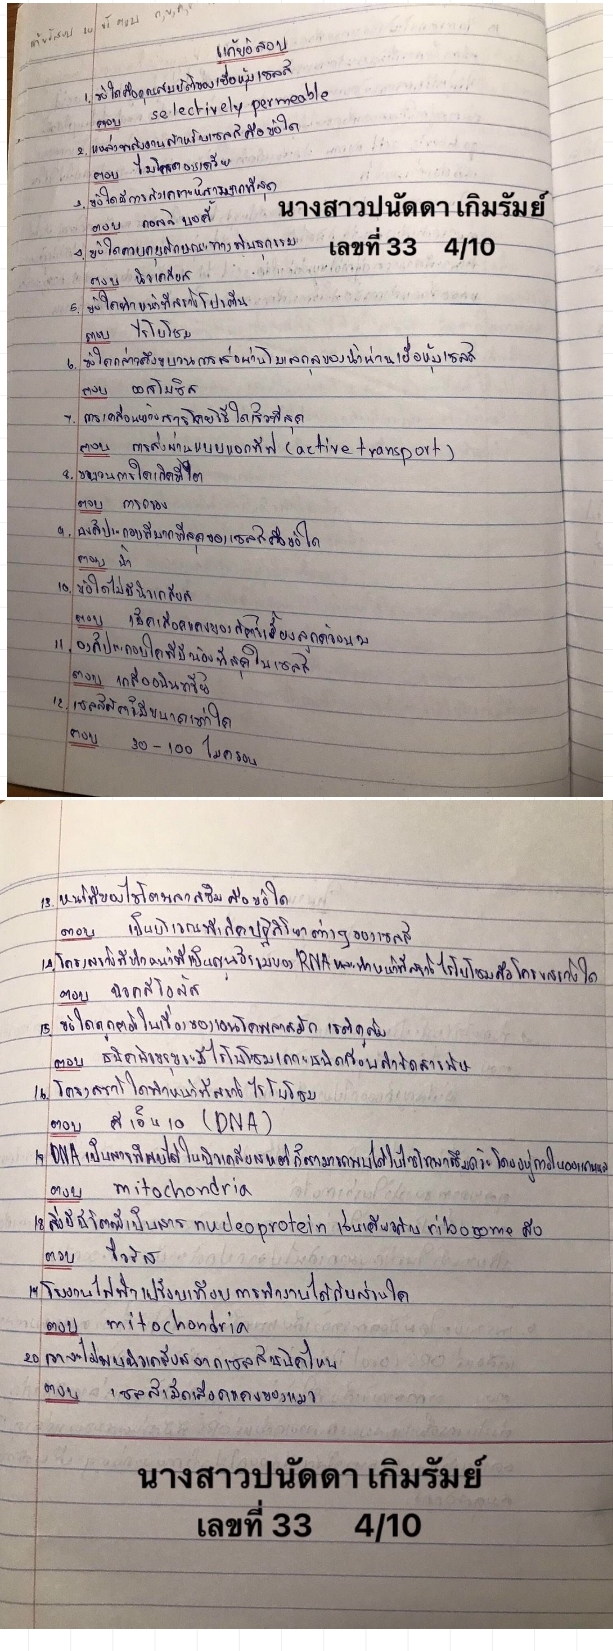 แก้ข้อสอบ
1. ข้อใดคือคุณสมบัติของเยื่อหุ้มเซลล์
ตอบ selectively permeable
2. แหล่งพลังงานสำหรับเซลล์คือข้อใด
ตอบ ไมโทคอนเดรีย
3. ข้อใดมีการสังเคราะห์สารมากที่สุด
ตอบ กอลจิ บอดี้
นางสาวปนัดดา เกิมรัมย์
เลขที่ 33 4/10
4. ข้อใดควบคุมลักษณะทางพันธุกรรม
ตอบ นิวเคลียส
5. ข้อใดทำหน้าที่สร้างโปรตีน
ตอบ ไรโบโซม
6. ข้อใดกล่าวถึงขบวนการส่งผ่านโมเลกุลของน้ำผ่านเยื่อหุ้มเซลล์
ตอบ ออสโมซิส
7. การเคลื่อนของสารโดยวิธีใดเร็วที่สุด
ตอบ การส่งผ่านแบบแอกทีฟ (active transport)
8. ขบวนการใดเกิดที่ไต
ตอบ การกรอง
9. องค์ประกอบที่มากที่สุดของเซลล์คือข้อใด
ตอบ น้ำ
10. ข้อใดไม่มีนิวเคลียส
ตอบ เม็ดเลือดแดงของสัตว์เลี้ยงลูกด้วยนม
11. องค์ประกอบใดที่มีน้อยที่สุดในเซลล์
ตอบ เกลืออนินทรีย์
12. เซลล์สัตว์มีขนาดเท่าใด
ตอบ 30-100 ไมครอน
13. หน้าที่ของไซโตพลาสซึมคือข้อใด
ตอบ เป็นบริเวณที่เกิดปฏิกิริยาต่างๆของเซลล์
14. โครงสร้างที่ทำหน้าที่เป็นศูนย์รวมของ RNA และทำหน้าที่สร้างไรโบโซมคือโครงสร้างใด
ตอบ นิวคลีโอลัส
15. ข้อใดถูกต้องในเรื่องของเอนโดพลาสมิก เรติคูลัม
ตอบ ชนิดผิวขรุขระมีไรโบโซมเกาะชนิดเรียบกำจัดสารพิษ
16. โครงสร้างใดทำหน้าที่สร้างไรโบโซม
ตอบ ดีเอ็นเอ (DNA)
17. DNA เป็นสารที่พบได้ในนิวเคลียสแต่ก็สามารถพบได้ในไซโทพลาซึมด้วย โดยอยู่ภายในออแกเนล
ตอบ mitochondria
18. สิ่งมีชีวิตที่เป็นสาร nucleoprotein เช่นเดียวกับ ribosome คือ
ตอบ ไวรัส
19. โรงงานไฟฟ้าเปรียบเทียบการทำงานได้กับส่วนใด
ตอบ mitochondria
20. เราจะไม่พบนิวเคลียสจากเซลล์ชนิดไหน
ตอบ เซลล์เม็ดเลือดแดงของแมว
นางสาวปนัดดา เกิมรัมย์
เลขที่ 33 4/10